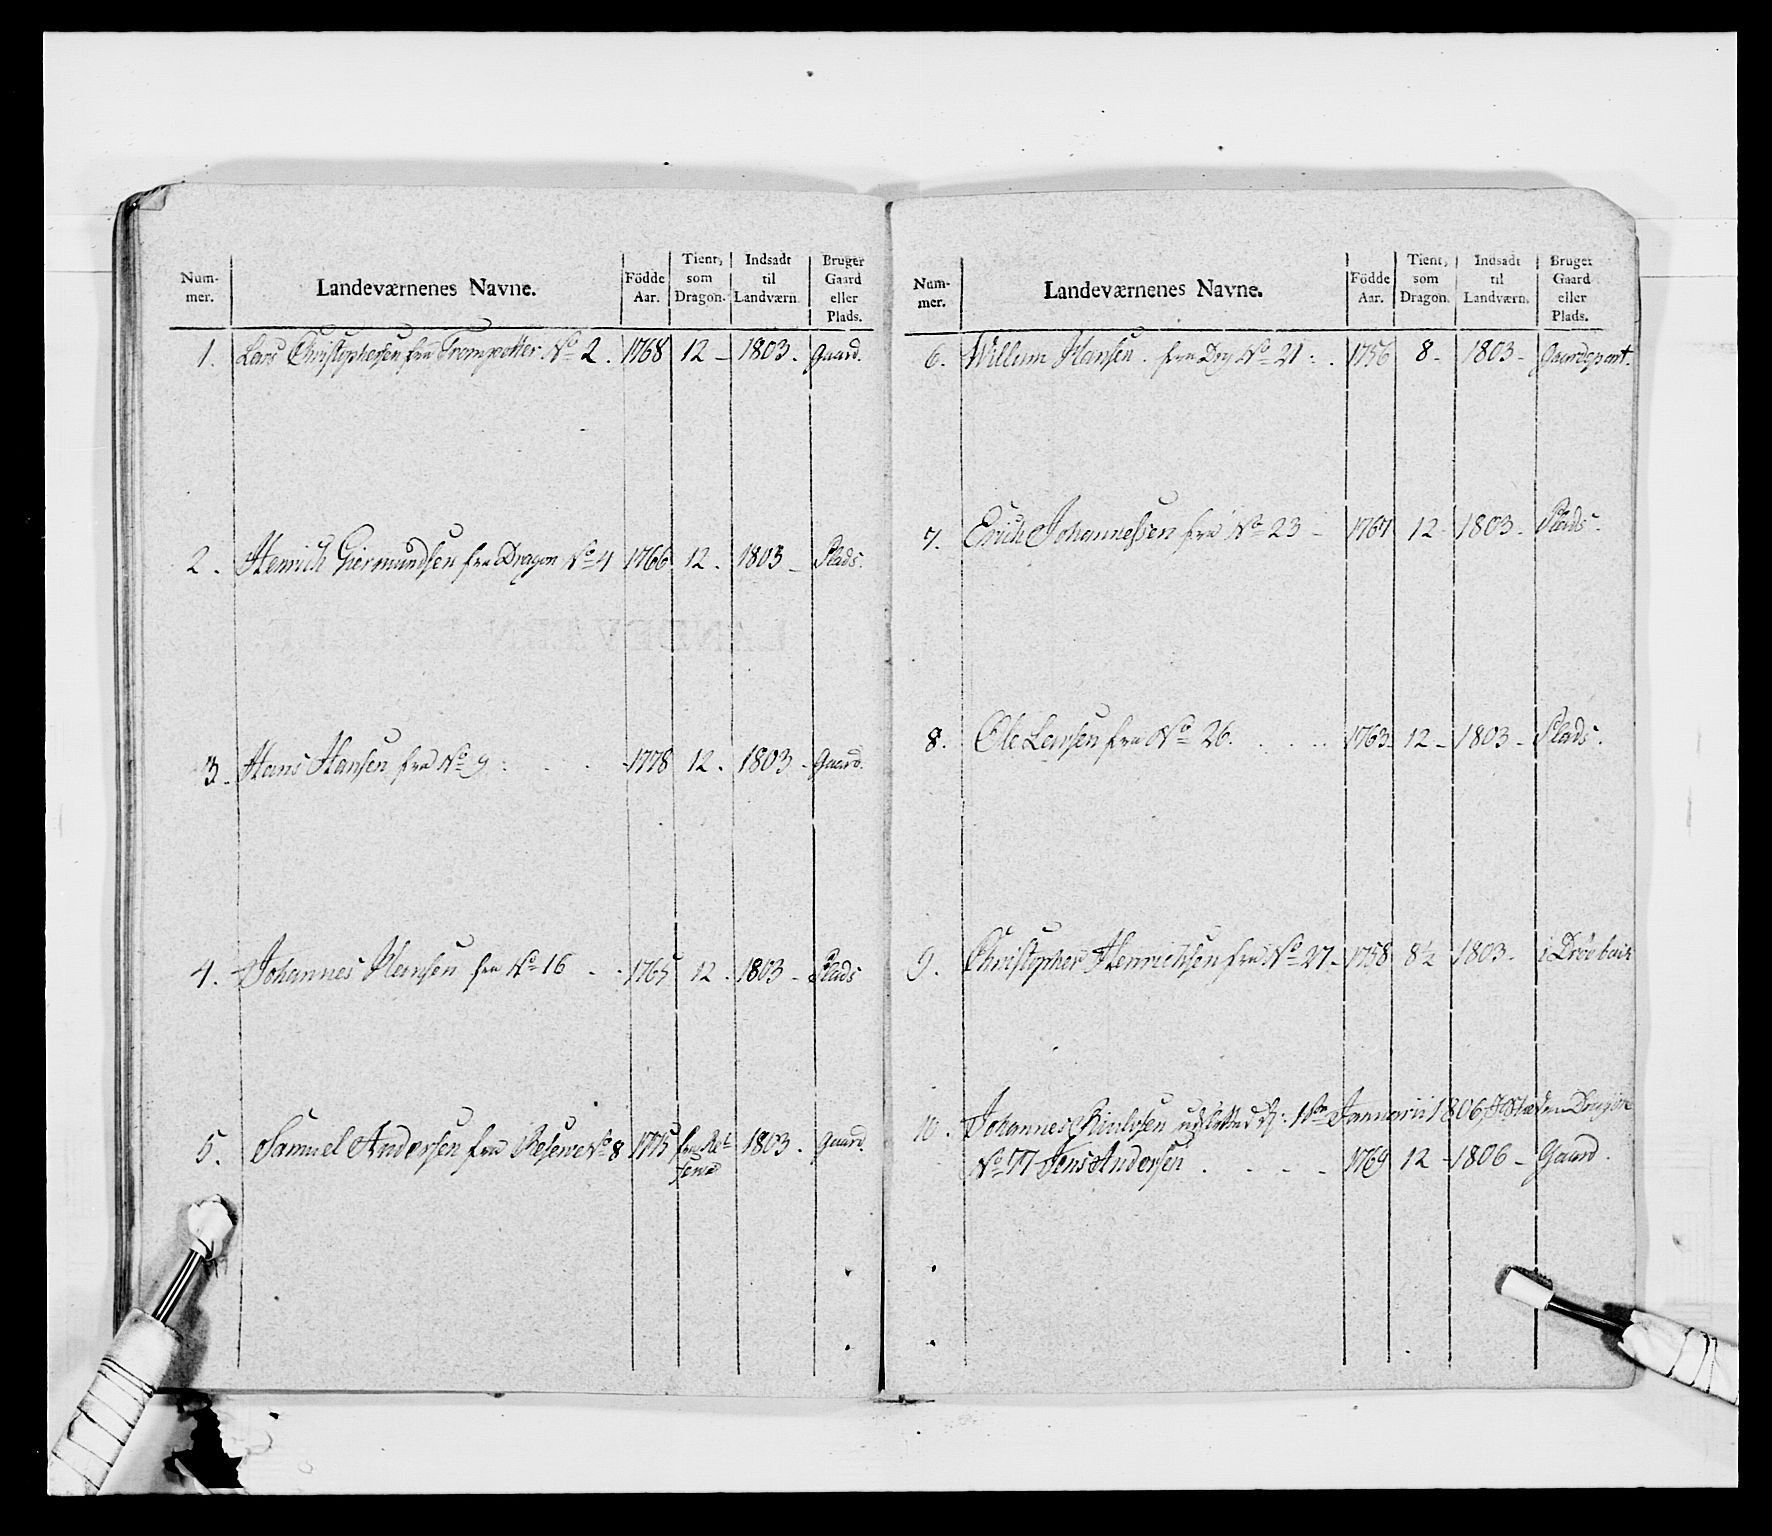 Num-
mer.
Landeværnenes Navne.
Födde
Aar.
Tient,
som
Dragon.
Indsadt
til
Landværn.
Bruger
Gaard
eller
Plads.
1. Lars Christophersen fra Trompetter No 2. 1768 12 - 1803. Gaard.
2. Henrich Giermundsen fra Dragon No 4 1766 12. 1803 - Plads.
3. Hans Hansen fra No 9 1778 12. 1803 - Gaard.
4. Johannes Hansen fra No 16 - 1765 12. 1803 - Plads
5. Samuel Andersen fra Reserve No 8 1775 fra Re- 1803. Gaard.
serve
Num-
mer.
Landeværnenes Navne.
Födde
Aar.
Tient,
som
Dragon.
Indsadt
til
Landværn.
Bruger
Gaard
eller
Plads.
6. Willum Hansen. fra Drg No 21. 1756 8 - 1803 - Gaardepart.
7. Erich Johannessen fra No 23 - 1767 12 - 1803 - Plads.
8. Ole Larsen fra No 26. 1763 - 12 - 1803 - Plads.
9. Christopher Henrichsen fra No 27 - 1758 8½ - 1803 - i Drøbach
10. Johannes udslettet d: 1te Januarii 1806, I Stæden Dragon
No 77 Jens Andersen 1769 12 - 1806 - Gaard.